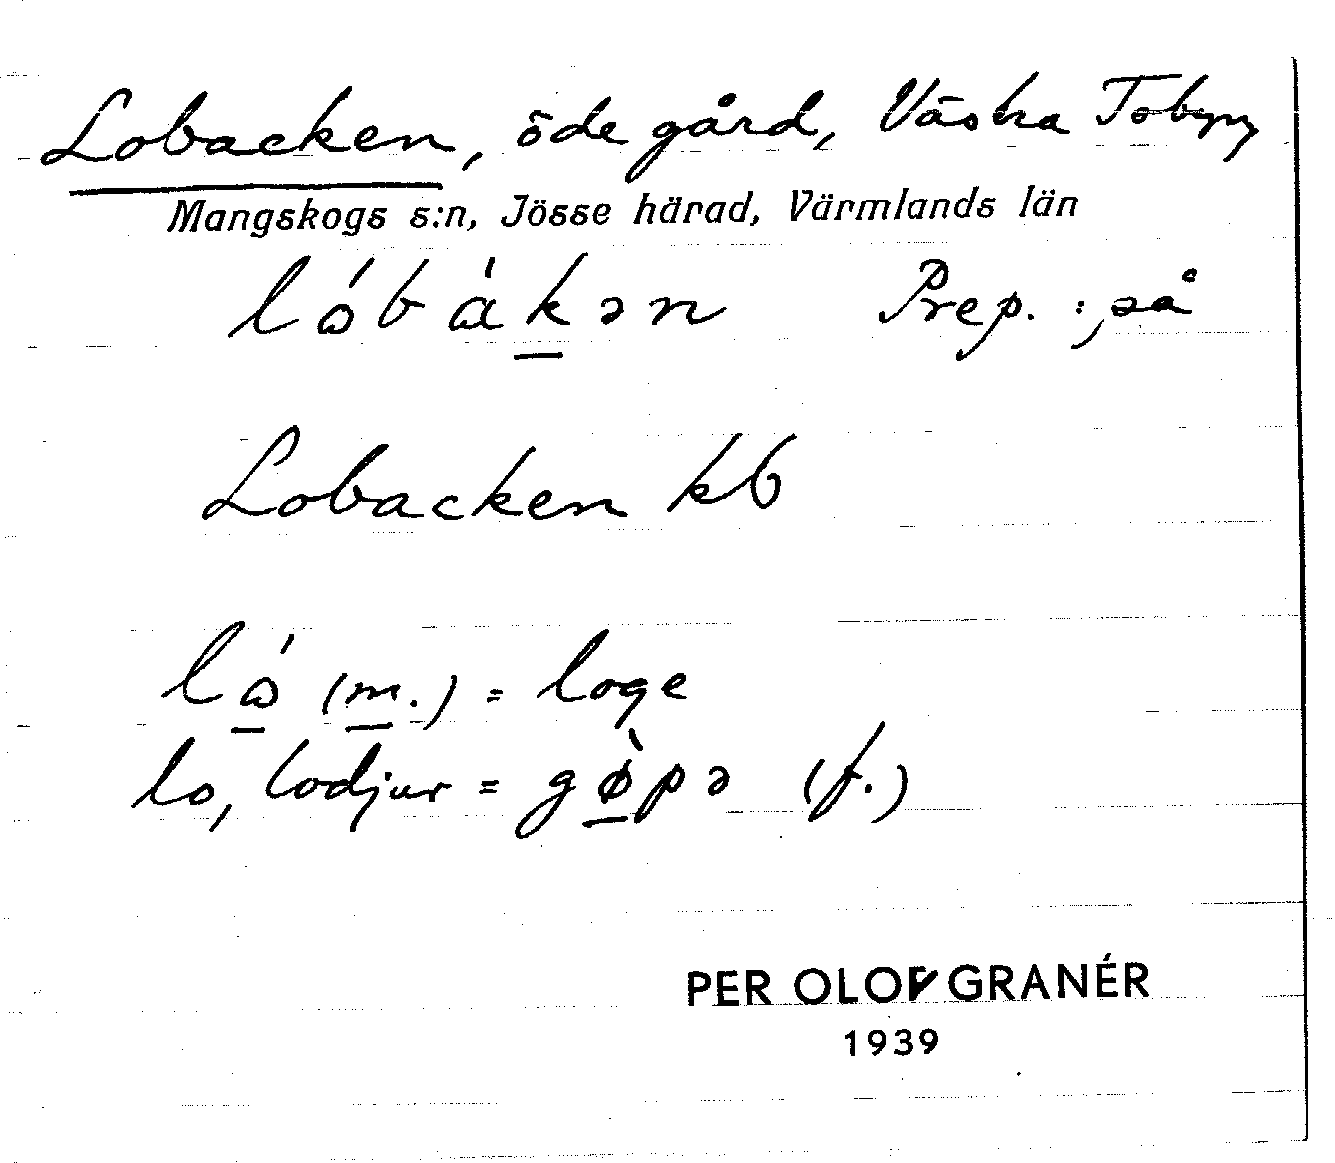 Lobacken, öde gård, Västra Tobyn
Mangskogs s:n, Jösse härad, Värmlands län
lóbàkən Prep.: på
Lobacken kb
ló (m.) = loge
lo, lodjur = gø̀pə (f.)
PER OLOF GRANÉR
1939